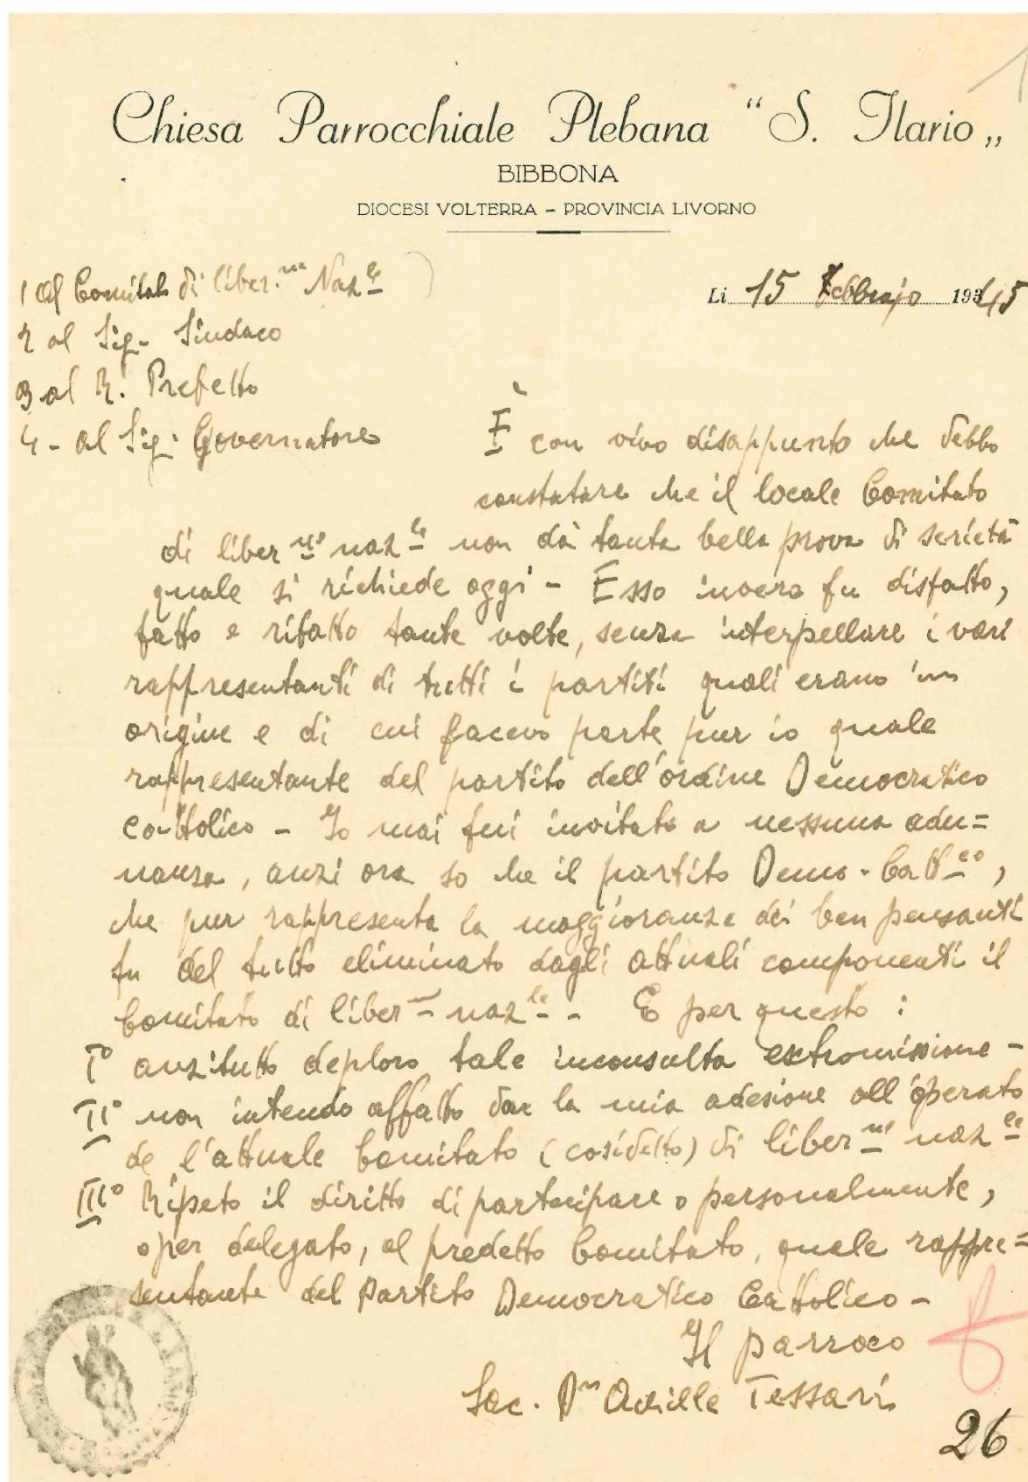 Chiesa Parrocchiale Plebana "S. Ilario„
BIBBONA
DIOCESI VOLTERRA – PROVINCIA LIVORNO
Li 15 Febbrajo 1945
1 al Comitato di liber.ne Naz.le
2 al Sig. Sindaco
3 al R. Prefetto
4 - al Sig. Governatore
È con vivo disappunto che debbo
constatare che il locale Comitato
di liber.ne naz.le non dà tanta bella prova di serietà
quale si richiede oggi - Esso invero fu disfatto,
fatto e rifatto tante volte, senza interpellare i vari
rappresentanti di tutti i partiti quali erano in
origine e di cui facevo parte pur io quale
rappresentante del partito dell'ordine Democratico
Cattolico - Io mai fui invitato a nessuna adu=
nanza, anzi ora so che il partito Demo-Catt.co,
che pur rappresenta la maggioranza dei ben pensanti
fu del tutto eliminato dagli attuali componenti il
Comitato di liber.ne naz.le - E per questo :
I° anzitutto deploro tale inconsulta extromissione -
II° non intendo affatto dar la mia adesione all'operato
de l'attuale Comitato (cosidetto) di liber.ne naz.le
III° Ripeto il diritto di partecipare o personalmente,
o per delegato, al predetto Comitato, quale rappre=
sentante del Partito Democratico Cattolico -
Il parroco
Sac. Dn Achille Tessari
26